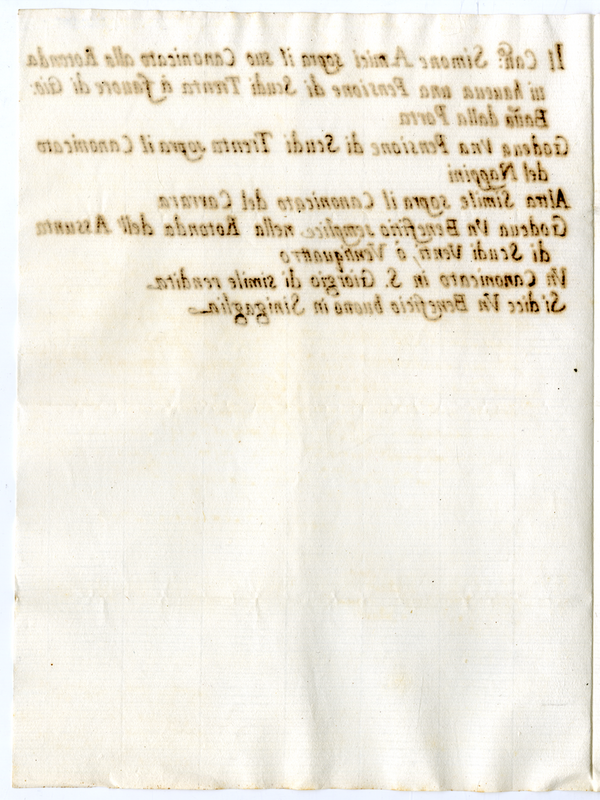 Il Can.co Simone Amici sopra il suo Canonicato alla Rotonda
ui haueua una Pensione di Scudi Trenta à fauore di Gio:
Batta dalla Porta
Godeua Vna Pensione di Scudi Trenta sopra il Canonicato
del Nappini
Altra Simile sopra il Canonicato del Carrara
Godeua Vn Beneficio semplice nella Rotonda dell'Assunta
di Scudi Venti, ò Ventiquattro
Vn Canonicato in S. Giorgio di simile rendita
Si dice Vn Beneficio buono in Sinigaglia